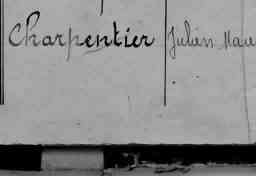 Charpentier Julien Marie